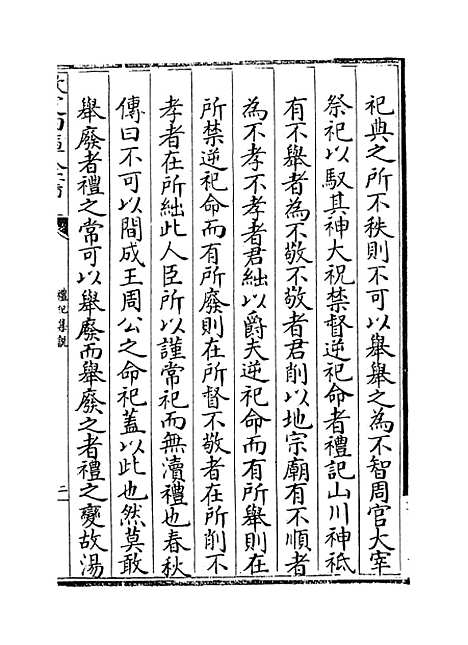 祀典之所不秩則不可以舉舉之為不智周官大宰
祭祀以馭其神大祝禁督逆祀命者禮記山川神祇
有不舉者為不敬不敬者君削以地宗廟有不順者
為不孝不孝者君絀以爵夫逆祀命而有所舉則在
所禁逆祀命而有所廢則在所督不敬者在所削不
孝者在所絀此人臣所以謹常祀而無瀆禮也春秋
傳曰不可以間成王周公之命祀蓋以此也然莫敢
舉廢者禮之常可以舉廢而舉廢之者禮之變故湯
禮記集說
二